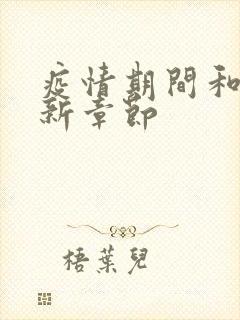 疫情期間和
新章節
梧葉兒